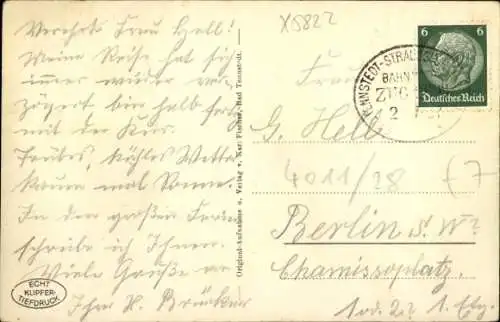 X5822
Verehrte Frau Hell!
Meine Reise hat sich
immer wieder ver-
zögert bin halb fertig
mit der Kur.
Trübes, kühles Wetter
kaum mal Sonne.
In den großen Ferien
schreibe ich Ihnen.
Viele Grüße von
Ihrer H.
ECHT
KUPFER-
TIEFDRUCK
Original-Aufnahme u. Verlag v. Karl Fischer, Bad Tennstedt.
6 6
Deutsches Reich
BAHN
ZUG
2
Frau
G. Hell
4011/28
Berlin S. W.
Chamissoplatz